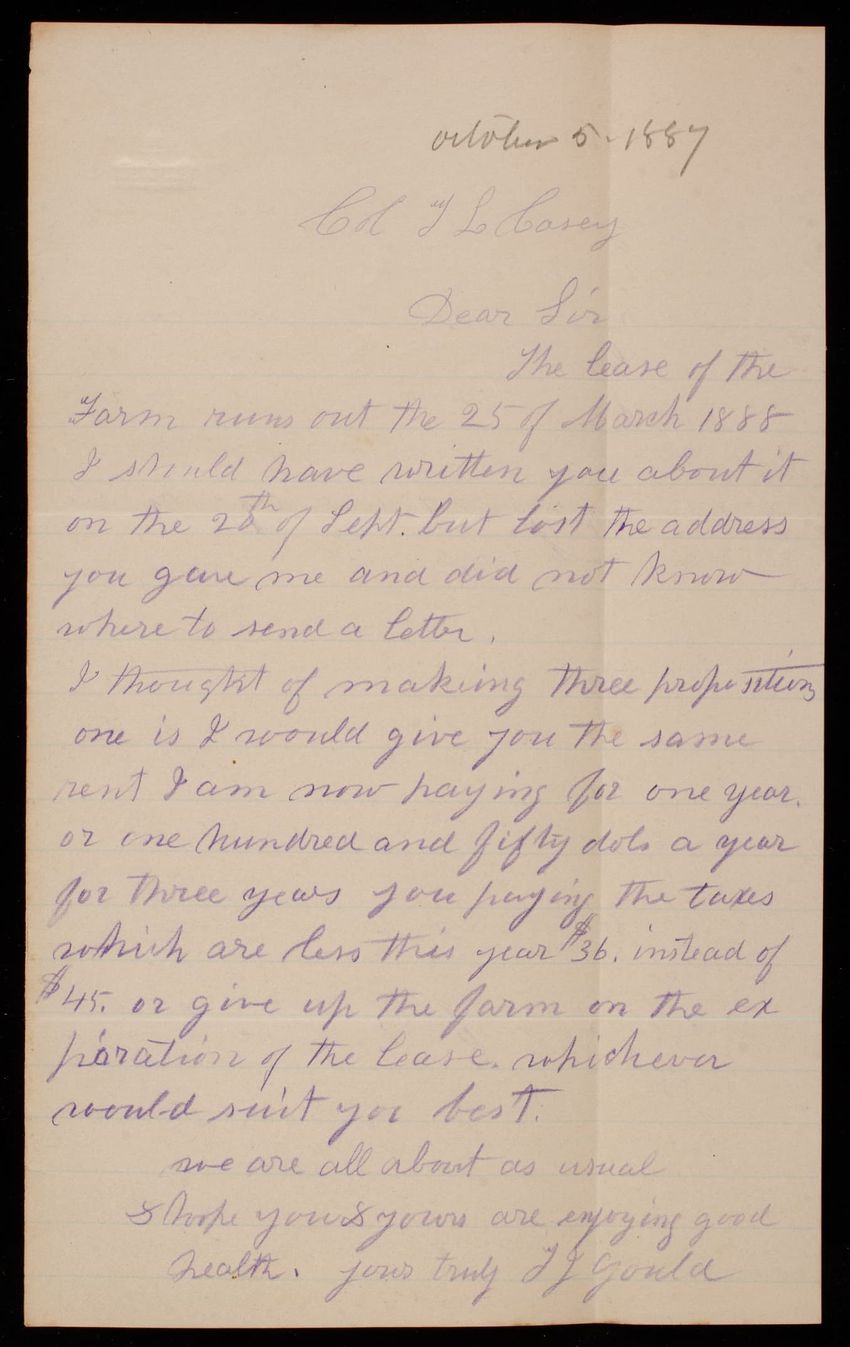 October 5. 1887
Col T L Casey
Dear Sir
The lease of the
Farm runs out the 25 of March 1888
I should have written you about it
on the 25th of Sept. but lost the address
you gave me and did not know
where to send a letter.
I thought of makeing three propositions
one is I would give you the same
rent I am now paying for one year.
or one hundred and fifty dols a year
for three years you paying the taxes
which are less this year $36. instead of
$45. or give up the farm on the ex
piration of the lease. whichever
would suit you best.
we are all about as usual
& hope you & yours are enjoying good
health. yours truly T J Gould